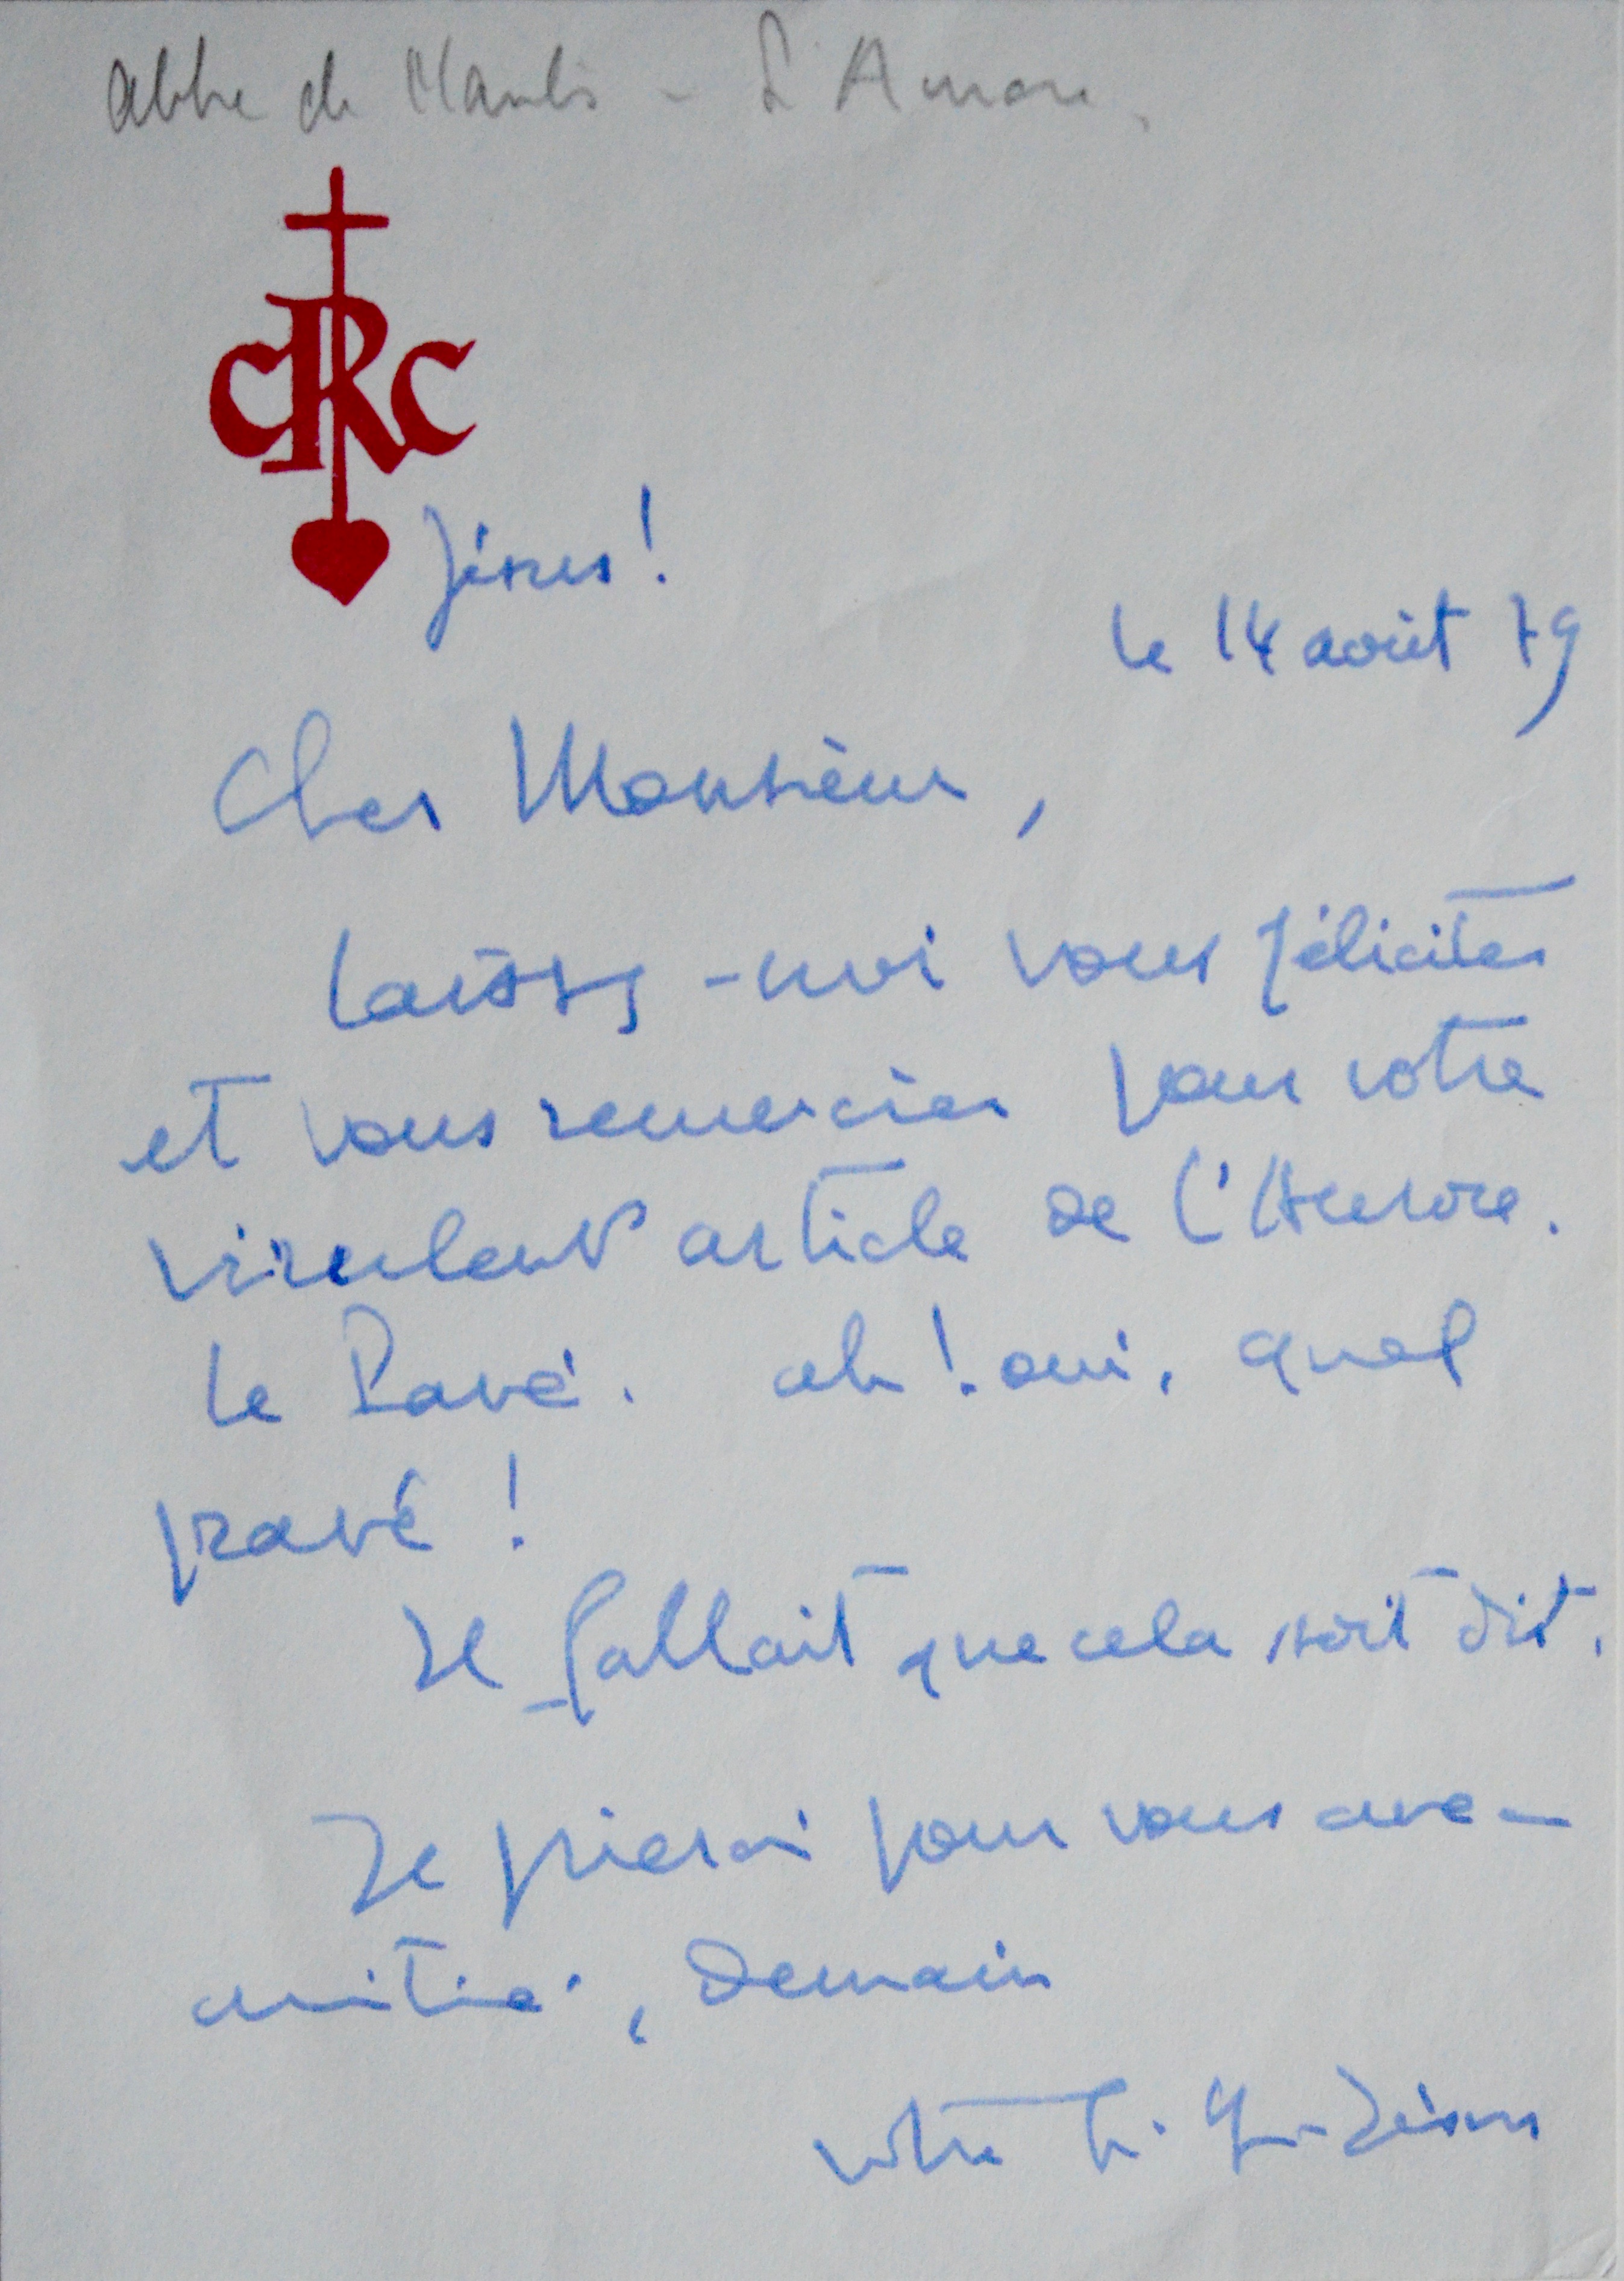 Abbé de Nantes - L'Aurore.
CRC
Jésus!
le 14 août 79
Cher Monsieur,
Laissez-moi vous féliciter
et vous remercier pour votre
virulent article de l'Aurore.
Le Pavé. ah! oui, quel
pavé!
Il fallait que cela soit dit.
Je prierai pour vous avec
amitié, demain
votre fr. G. de Jésus